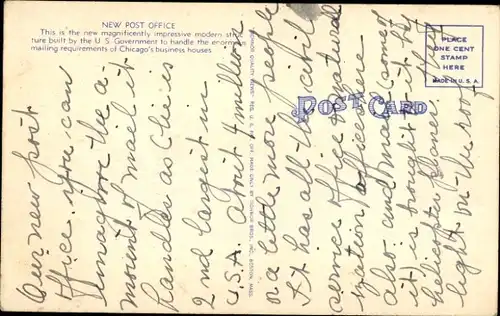 NEW POST OFFICE
This is the new magnificently impressive modern struc-
ture built by the U. S. Government to handle the enormous
mailing requirements of Chicago's business houses
POST CARD
PLACE
ONE CENT
STAMP
HERE
MADE IN U. S. A.
Our new post
office. You can
imagine the a-
mount of mail it
handles as Chic is
2nd largest in
U.S.A. About 4 million
or a little more people
It has all the civil
service offices & natural
ization offices here
also and mail comes
it is brought to it by
helicopter planes.
light on the roof